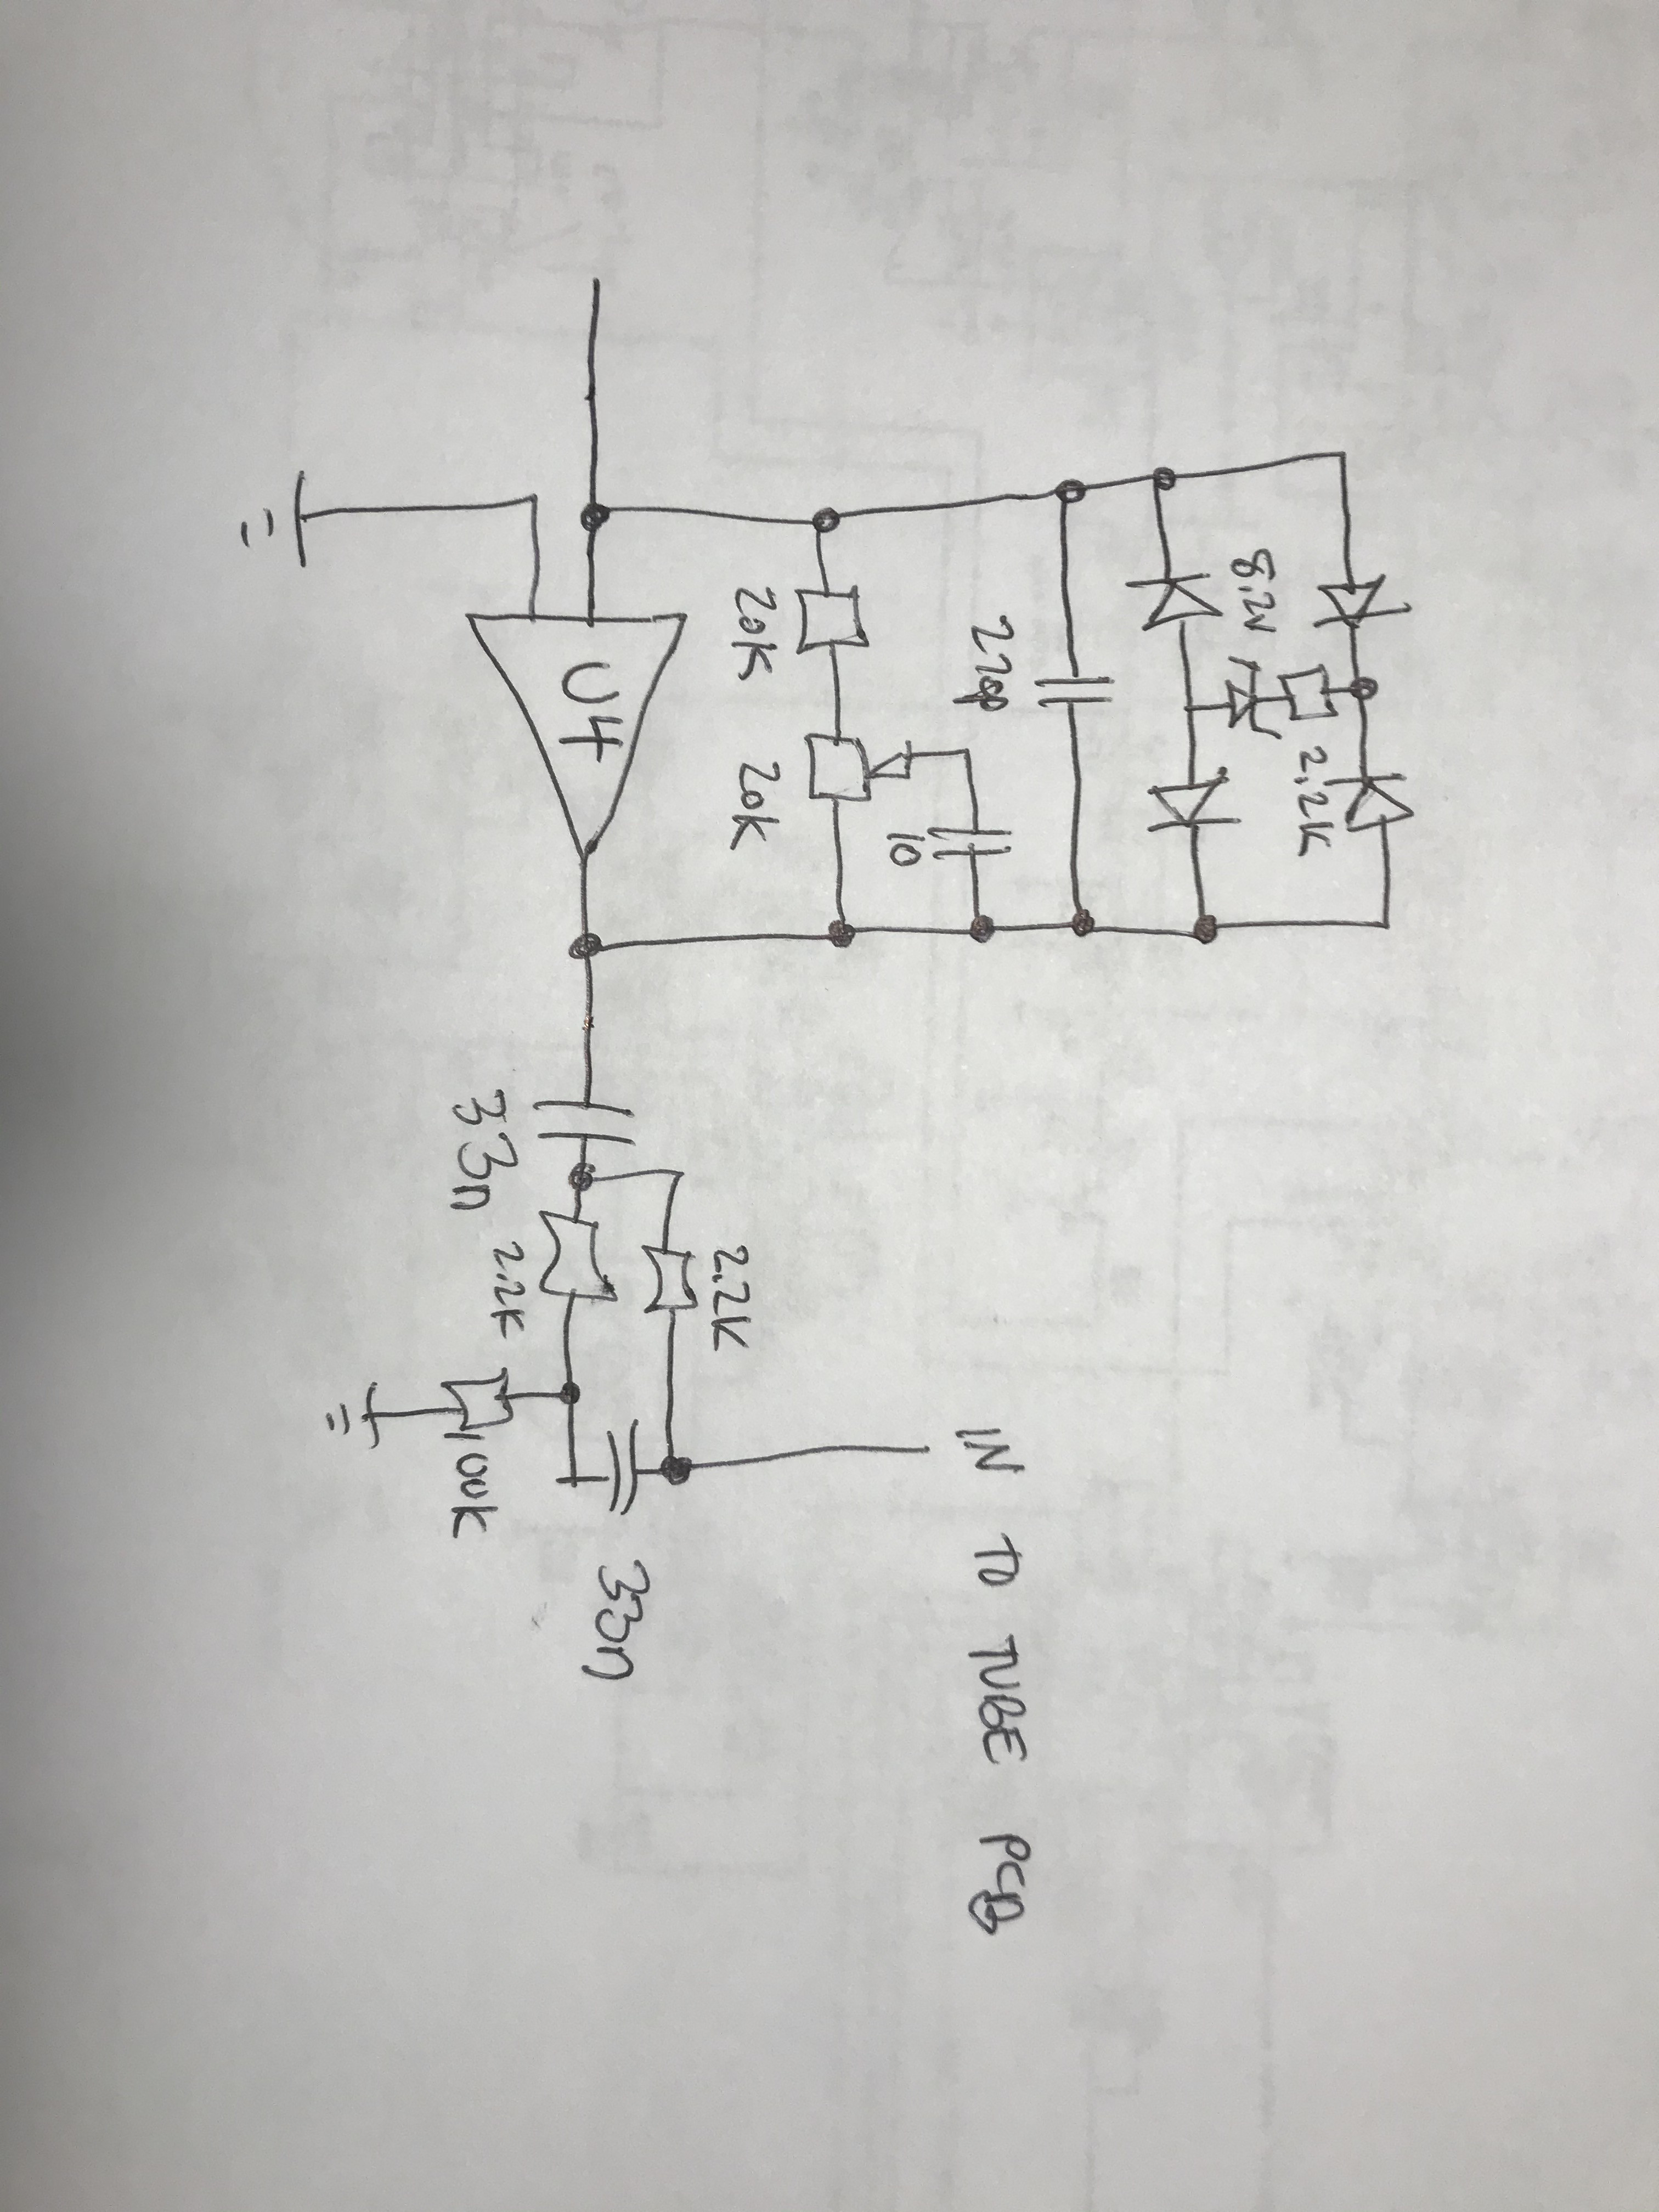 2.2K
8.2V
IN TO TUBE PCB
220p
10
20K
20K
2.2K
U4
33n
2.2K
33n
100K